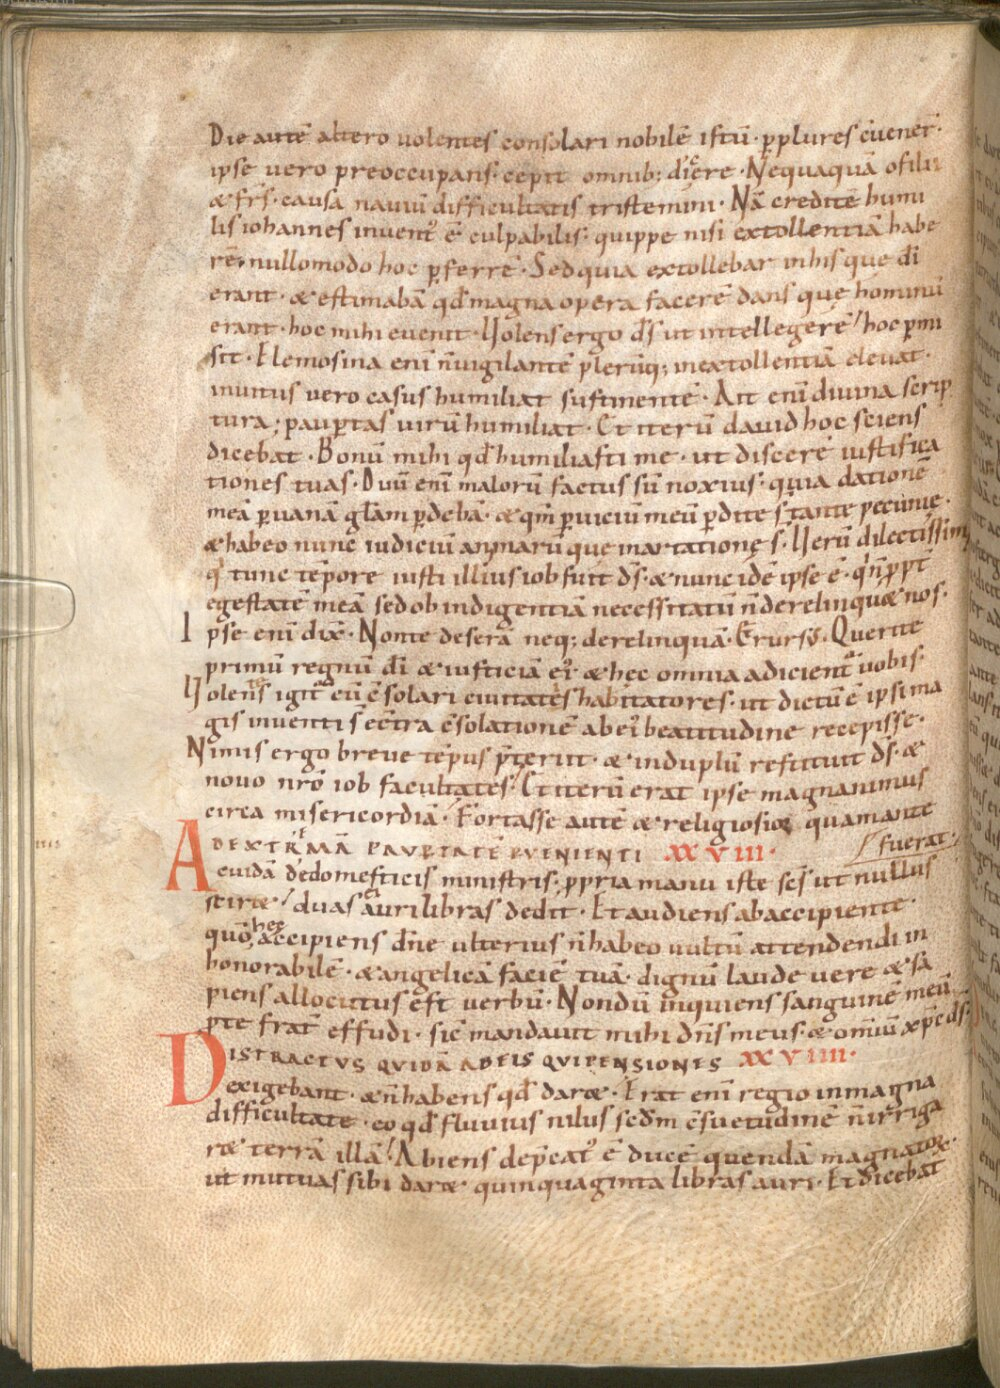 Die autē altero volentes consolari nobilē istū· p̱plures c̄uener̄·
ipse vero preoccupans· cepit omnib; dic̄ere· Nequaquā ofilii
& fr̄s· causa naviū difficultatis tristemini· Nā credite humi
lis iohannes invent᷒ ē culpabilis· quippe nisi extollentiā habe
rē· nullomodo hoc p̱ferrē· Sed quia extollebar inhis que dī
erant· & estimabā qđ magna opera facerē dans quę hominū
erant· hoc mihi evenit· Uolens ergo d̄s ut intellegerē hoc p̱mi
sit· Elemosina eni n̄vigilantē plerūq; inextollentiā elevat·
invitus vero casus humiliat sustinentē· Ait eni divina scrip
tura; paup̱tas virū humiliat· Et iterū david hoc sciens
dicebat· Bonū mihi qđ humiliasti me· ut discerē iustifica
tiones tuas· Duū eni malorū factus sū noxius· quia datione
meā p̱vanā glām p̱debā· & qm̄ p̱viciū meū p̱dite s̄ tante pecunię·
& habeo nunc iudiciū animarū que inartatione s̄· Uerū dilectissimi
q͛ tunc tēpore iusti illius iob fuit d̄s· & nunc idē ipse ē· q̄n p̱pt̄
egestatē meā sed ob indigentiā necessitatū n̄ derelinqu& nos·
Ipse eni dix̄· Non te deserā neq; derelinquā· Et rursū· Querite
primū regnū dī & iusticiā ei᷒· & hec omnia adicient᷒ vobis·
Uolens igit᷒ eū c̄solari civitatēs habitatores· ut dictū ē ipsi ma
gis inventi s̄ ec̄tra c̄solationē ab ei᷒ beatitudine recepisse·
Nimis ergo breve tēpus p̄teriit· & induplū restituit d̄s· &
novo nr̄o iob facultates· Et iterū erat ipse magnanimus
circa misericordiā· Fortasse autē & religiosior quamante
ADEXTREMĀ PAVP̱TATĒ P̱VENIENTI XXVIII· fuerat·
cuidā dedomesticis ministris· p̱pria manu iste sc̄s ut nullus
scir&· duas auri libras dedit· Et audiens abaccipiente·
quō hec accipiens dn̄e ulterius n̄ habeo vultū attendendi in
honorabilē· & angelicā faciē tuā· dignū laude vere & sa
piens allocutus est verbū· Nondū inquiens sanguinē meū
p̱te frat̄ effudi· sic mandavit mihi dn̄s meus· & omiū xp̄c d̄s·
DISTRACTVS QVIDĀ ABEIS QVI PENSIONES XXVIIII·
exigebant· & n̄ habens qđ dar&· Erat eni regio inmagna
difficultate· eo qđ fluvius nilus sed̄m c̄suetudinē n̄ irriga
r& terrā illā· Abiens dep̄cat᷒ ē ducē quendā magnatorꝝ·
ut mutuas sibi dar& quinquaginta libras auri· Et dicebat